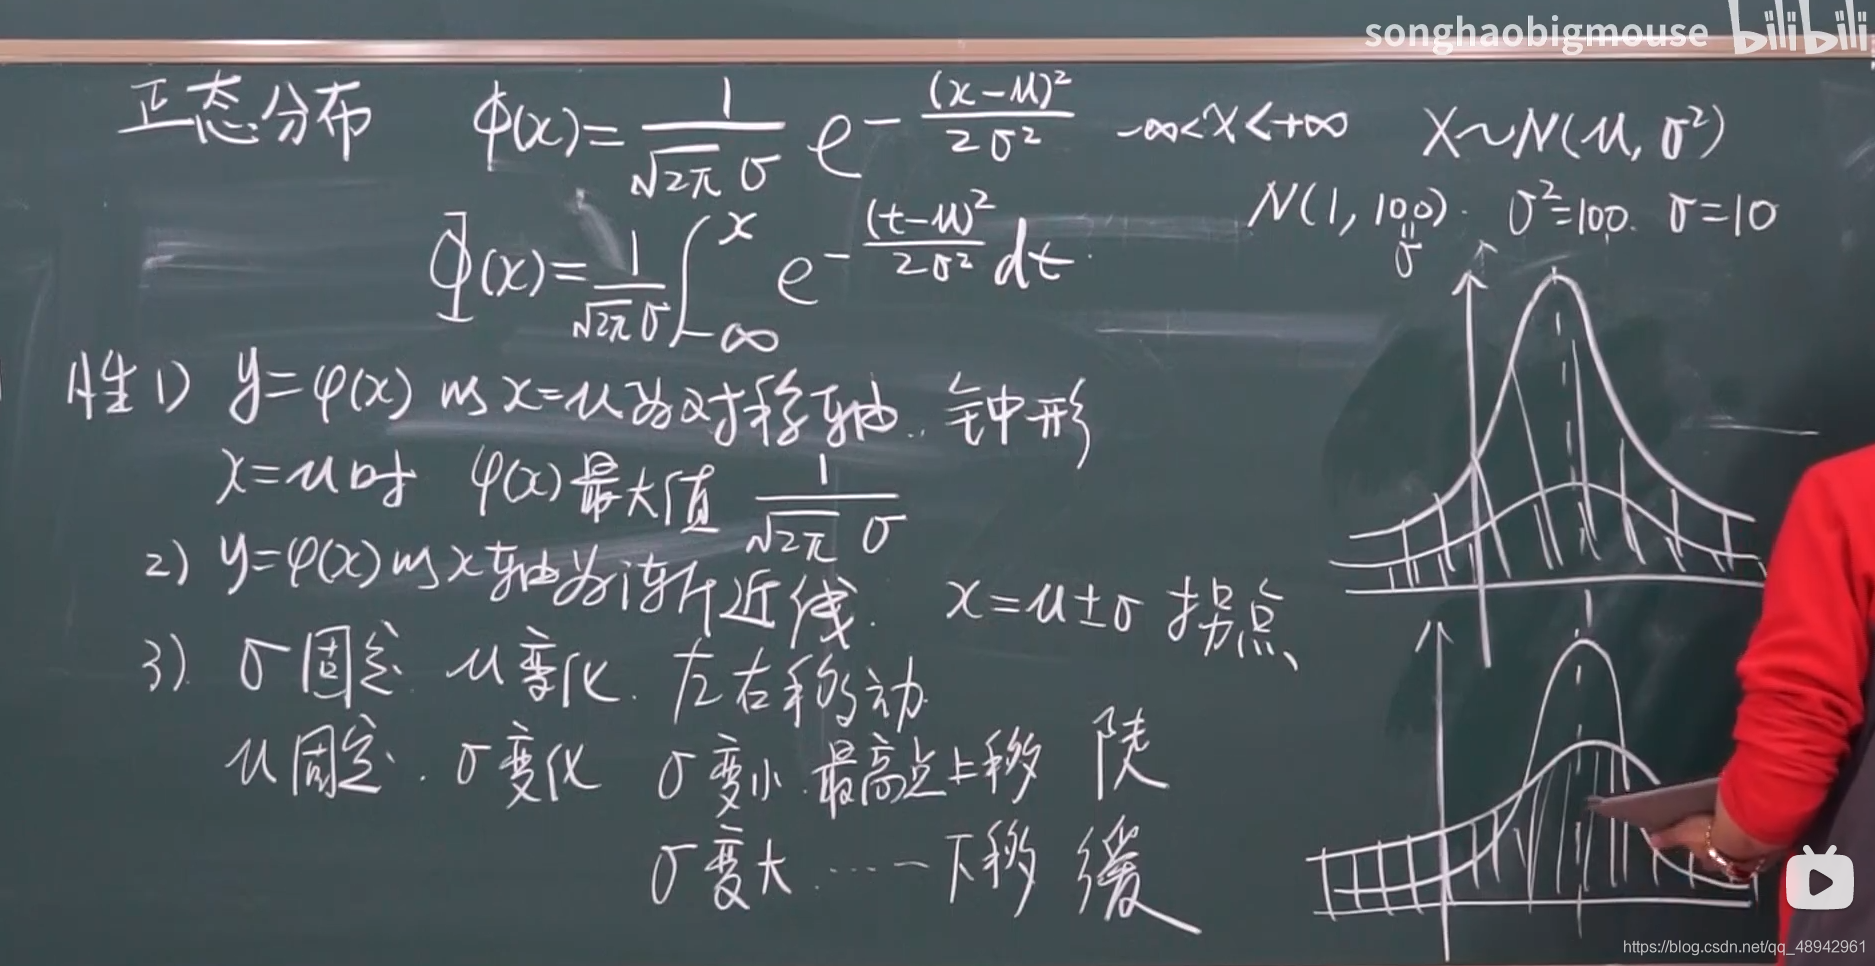 songhaobigmouse bilibili
正态分布 φ(x)=1/(√2π σ) e^(-(x-μ)²/(2σ²)) -∞<x<+∞ X~N(μ, σ²)
N(1, 100). σ²=100. σ=10
"
σ
Φ(x)=1/(√2π σ) ∫_{-∞}^{x} e^(-(t-μ)²/(2σ²)) dt.
性 1) y=φ(x) 以 x=μ 为对称轴.. 钟形
x=μ时 φ(x)最大值 1/(√2π σ)
2) y=φ(x)以x轴为渐近线. x=μ±σ 拐点、
3). σ固定. μ变化. 左右移动.
μ固定. σ变化 σ变小. 最高点上移 陡
σ变大……一下移 缓
https://blog.csdn.net/qq_48942961